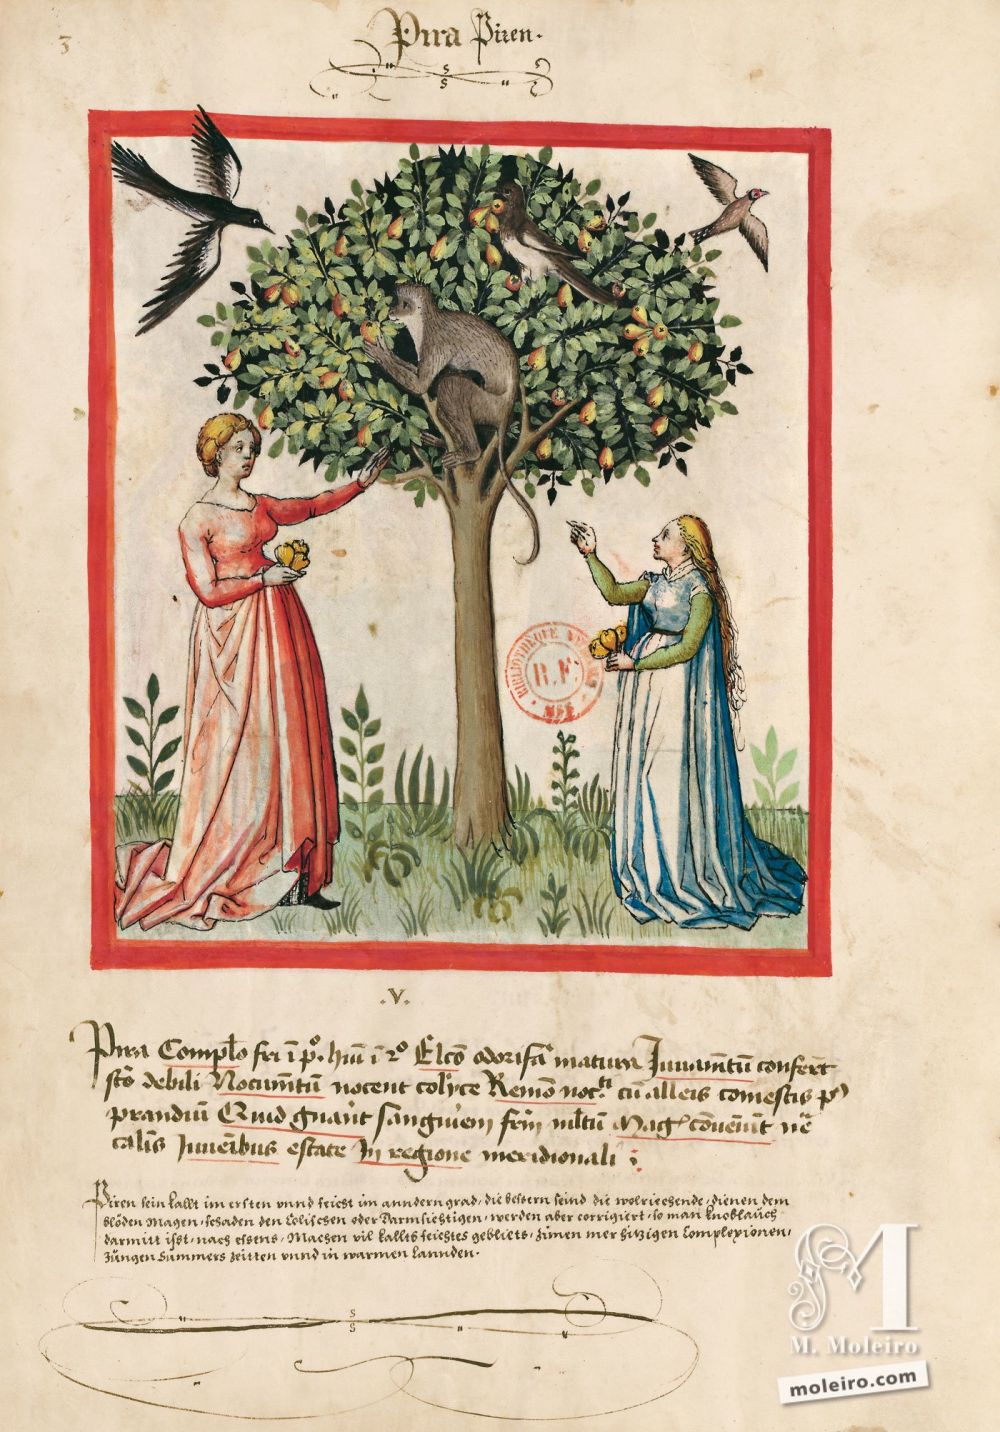 3
Pira Piren.
BIBLIOTHEQUE
R.F.
MSS
.V.
Pira Compło fri i pº. hui i 2º Elcõ odorifã matura Juuamtũ confert
sto debili Nocumtũ nocent colyce Remõ not. cũ alleis comestis pº
prandiũ Quid gnãnt sanguiem frm mltũ Mag conveniũt
calis Juueibus estate In regione meridionali
Piren sein kallt im ersten vnnd feicht im anndern grad, die bestern seind die wolriechende, dienen dem
blöden magen, schaden den Colischen oder Darmsichtigen, werden aber corrigiert, so man knoblauch
darmitt isst, nach essens, Machen vil kallts feichtes gebliets, Zimen mer hitzigen Complexionen,
Jüngen Summers zeitten vnnd in warmen lannden.
M
M. Moleiro
moleiro.com